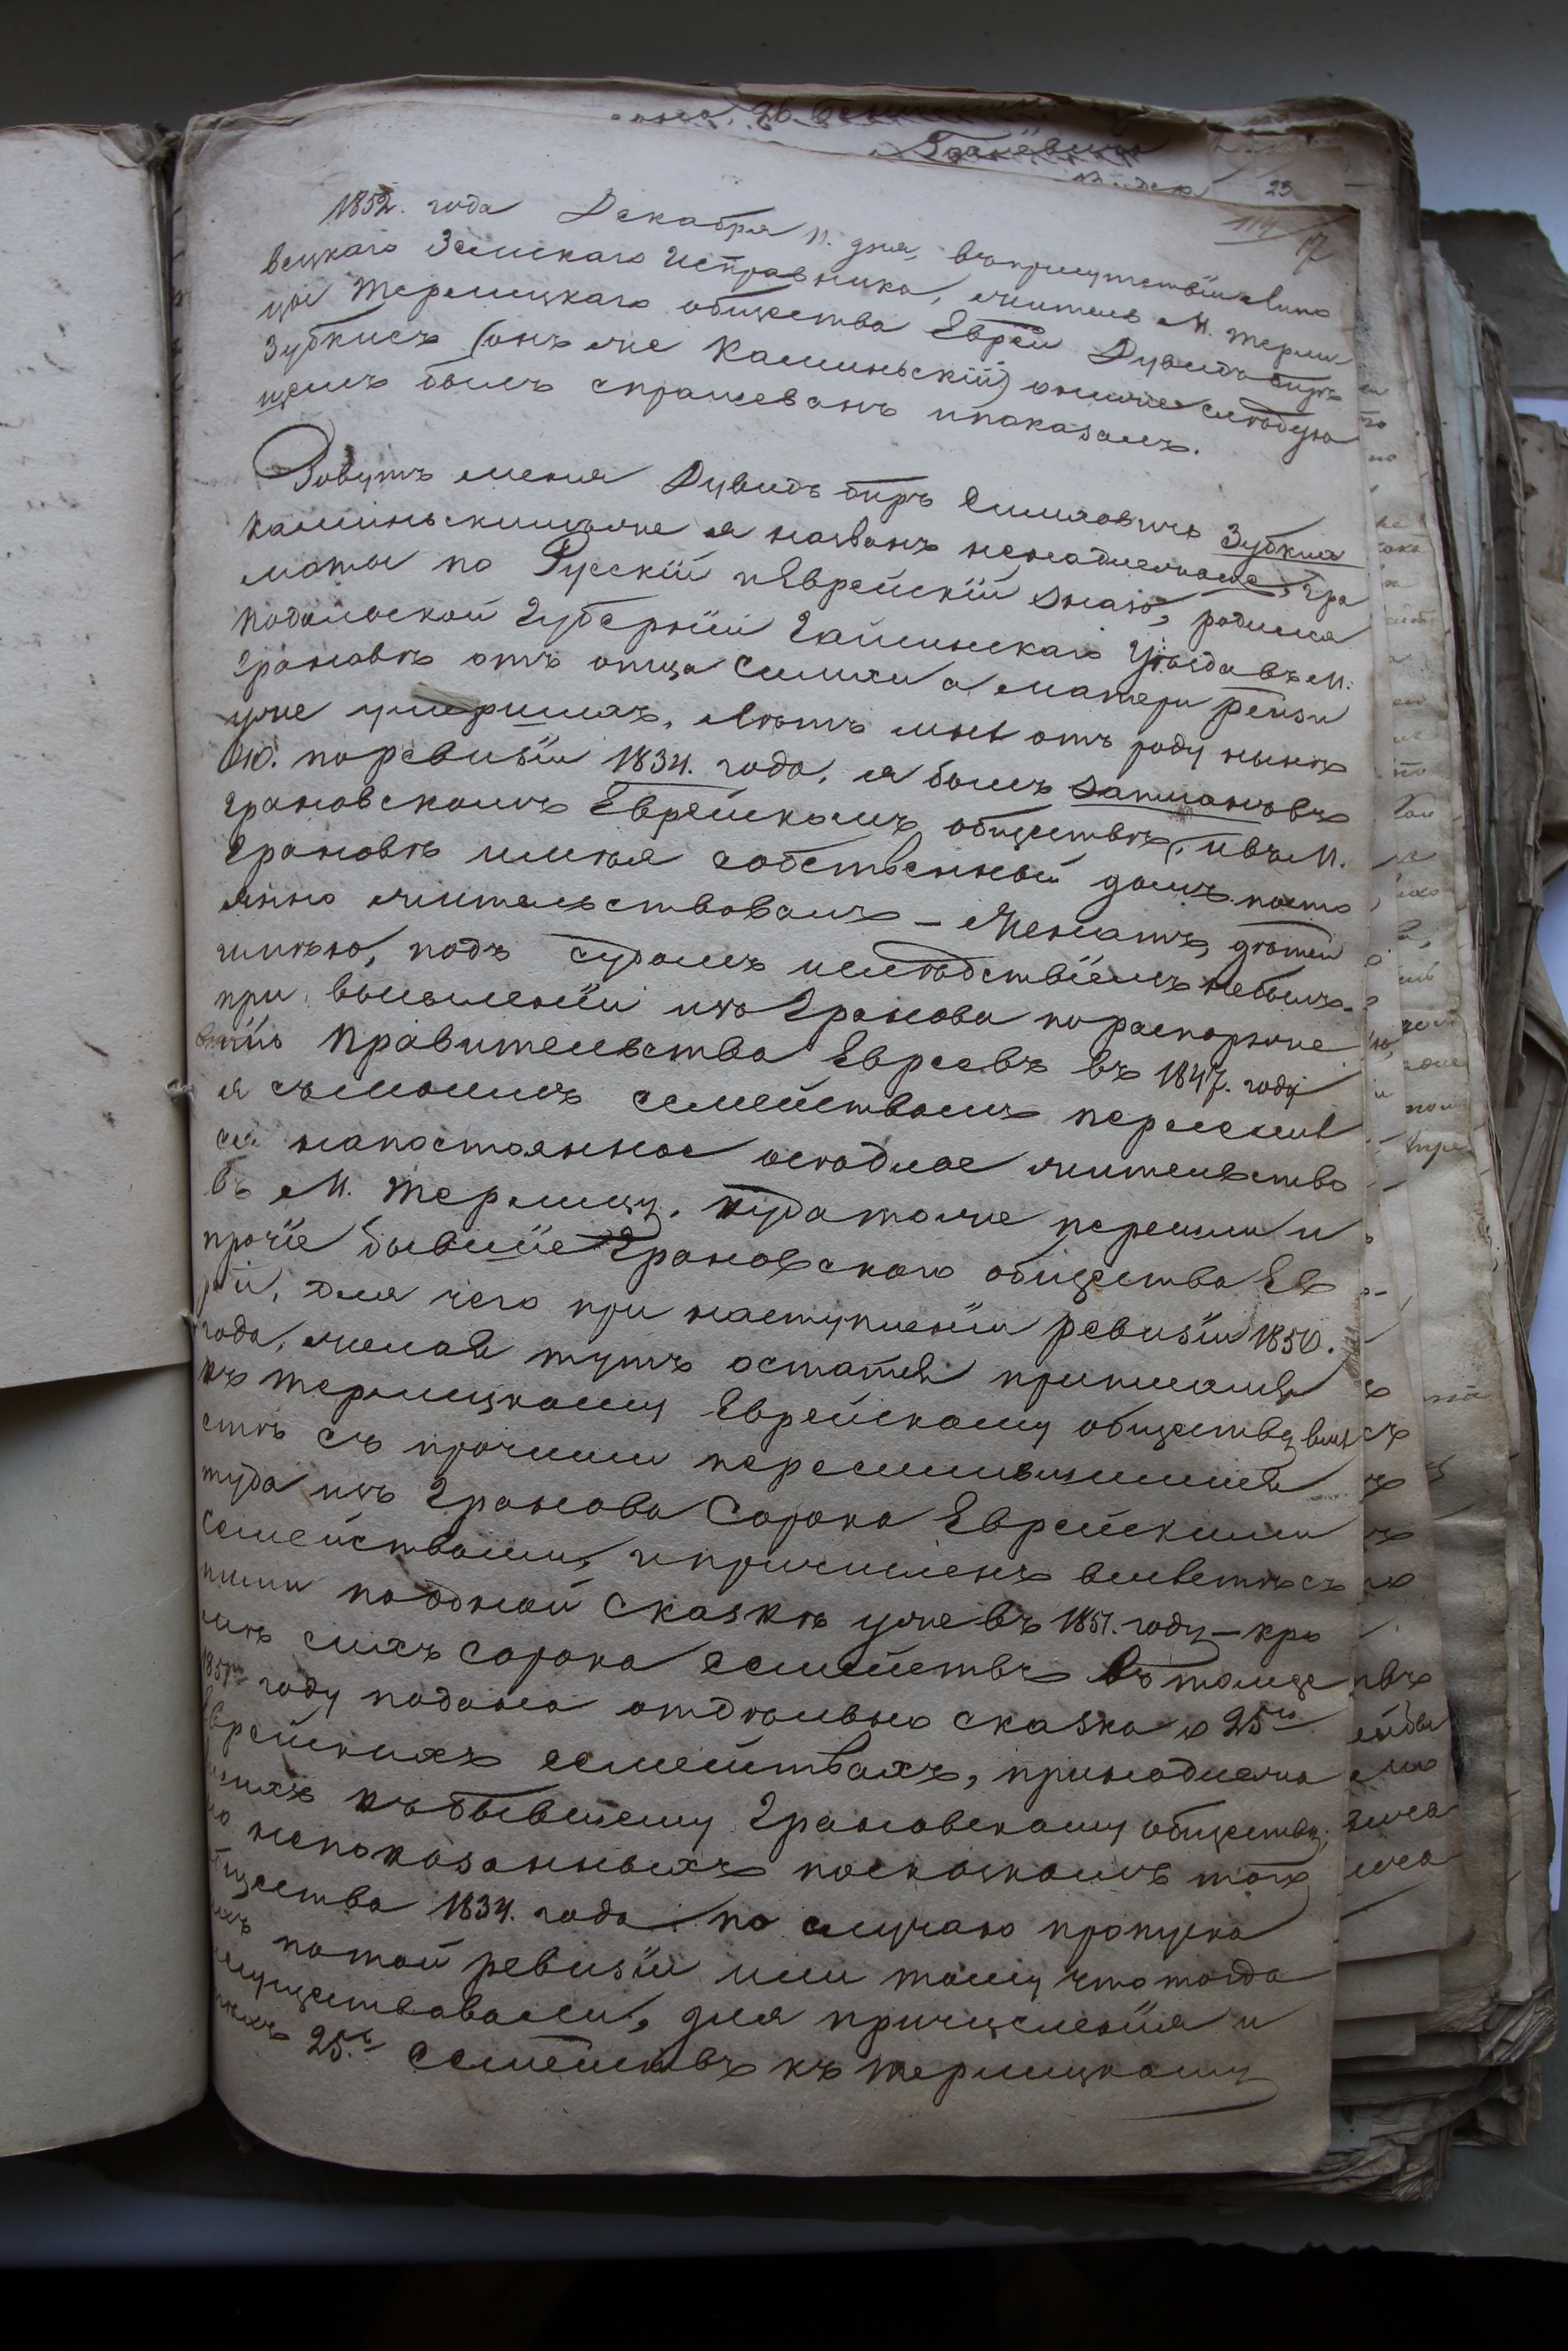 23
114 17
1852. года Декабря 11. дня, въ присутствіи Липо
вецкаго Земскаго Исправника, житель М. Терли
цы Терлицкаго общества Еврей Дувидъ Беръ
Зубкисъ (онъ же Каминьскій) о нижеслѣдую
щемъ былъ спрашеванъ и показалъ.
Зовутъ меня Дувидъ Беръ Симховичъ Зубкис
Каминьскимъ же я названъ ненадлежаще, гра
моты по Русскій и Еврейскій знаю, родился
Подольской Губерніи Гайсинскаго Уѣзда въ М.
Грановѣ отъ отца Симхи а матери Рейзи
уже умершихъ. Лѣтъ мнѣ отъ роду нынѣ
40. по ревизіи 1834. года, я былъ записанъ въ
Грановскомъ Еврейскомъ обществѣ, и въ М.
Грановѣ имѣя собственный домъ посто
янно жительствовалъ – Женатъ, дѣтей
имѣю, подъ судомъ и слѣдствіемъ небылъ.
при высыленіи изъ Гранова по распоряже
нію Правительства Евреевъ въ 1847. году
я съ моимъ семействомъ переселил
ся на постоянное осѣдлое жительство
въ М. Терлицу, куда также перешли и
прочіе бывшіе Грановскаго общества Ев
реи, для чего при наступленіи ревизіи 1850.
года, желая тутъ остатся приписался
къ Терлицкому Еврейскому обществу вмѣ
стѣ съ прочими переселившимися
туда изъ Гранова Сорока Еврейскими
семействами, и причисленъ вмѣстѣ съ
ними по одной сказкѣ уже въ 1851. году – кро
мѣ сихъ сорока семействъ въ томже
1851м году подана отдѣльно сказка о 25ти
Еврейскихъ семействахъ, принадлежа
щихъ къ бывшему Грановскому обществу,
но непоказанныхъ по сказкамъ того
общества 1834. года по случаю пропуска
ихъ по той ревизіи или тому что тогда
существовали, для причисленія и
25. семействъ къ Терлицкому